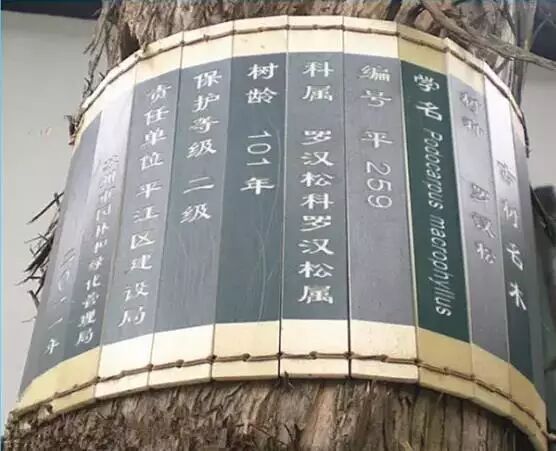 古树名木
树种 罗汉松
学名 Podocarpus macrophyllus
编号 平259
科属 罗汉松科罗汉松属
树龄 101年
保护等级 二级
责任单位 平江区建设局
苏州市园林和绿化管理局
二〇一一年